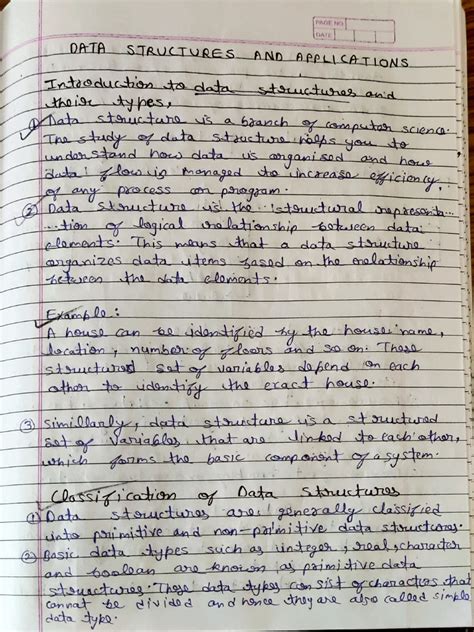 PAGE NO.
DATE
DATA STRUCTURES AND APPLICATIONS
Introduction to data structures and
their types.
① Data structure is a branch of computer science.
The study of data structure helps you to
understand how data is organised and how
data flow is managed to increase efficiency
of any process or program.
② Data structure is the structural representa
tion of logical relationship between data
elements. This means that a data structure
organizes data items based on the relationship
between the data elements.
Example :
A house can be identified by the house name,
location, number of floors and so on. These
structured set of variables depend on each
other to identify the exact house.
③ Simillarly, data structure is a structured
set of variables that are linked to each other,
which forms the basic component of a system.
Classification of Data Structures
① Data structures are generally classified
into primitive and non-primitive data structures.
② Basic data types such as integer, real, character
and boolean are known as primitive data
structures. These data types consist of characters that
cannot be divided and hence they are also called simple
data type.